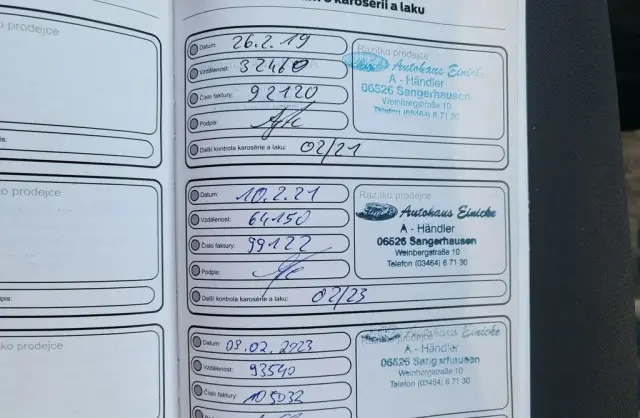 o karosérii a laku
Datum: 26.2.19
Vzdálenost: 32460
Číslo faktury: 92120
Podpis:
Další kontrola karosérie a laku: 02/21
Razítko prodejce
Autohaus Einicke
A - Händler
06526 Sangerhausen
Weinbergstraße 10
Telefon (03464) 6 71 30
zítko prodejce
Datum: 10.2.21
Vzdálenost: 64150
Číslo faktury: 99122
Podpis:
Další kontrola karosérie a laku: 02/23
Razítko prodejce
Autohaus Einicke
A - Händler
06526 Sangerhausen
Weinbergstraße 10
Telefon (03464) 6 71 30
ko prodejce
Datum: 09.02.2023
Vzdálenost: 93540
Číslo faktury: 105032
Razítko prodejce
Autohaus Einicke
A - Händler
06526 Sangerhausen
Weinbergstraße 10
Telefon (03464) 6 71 30